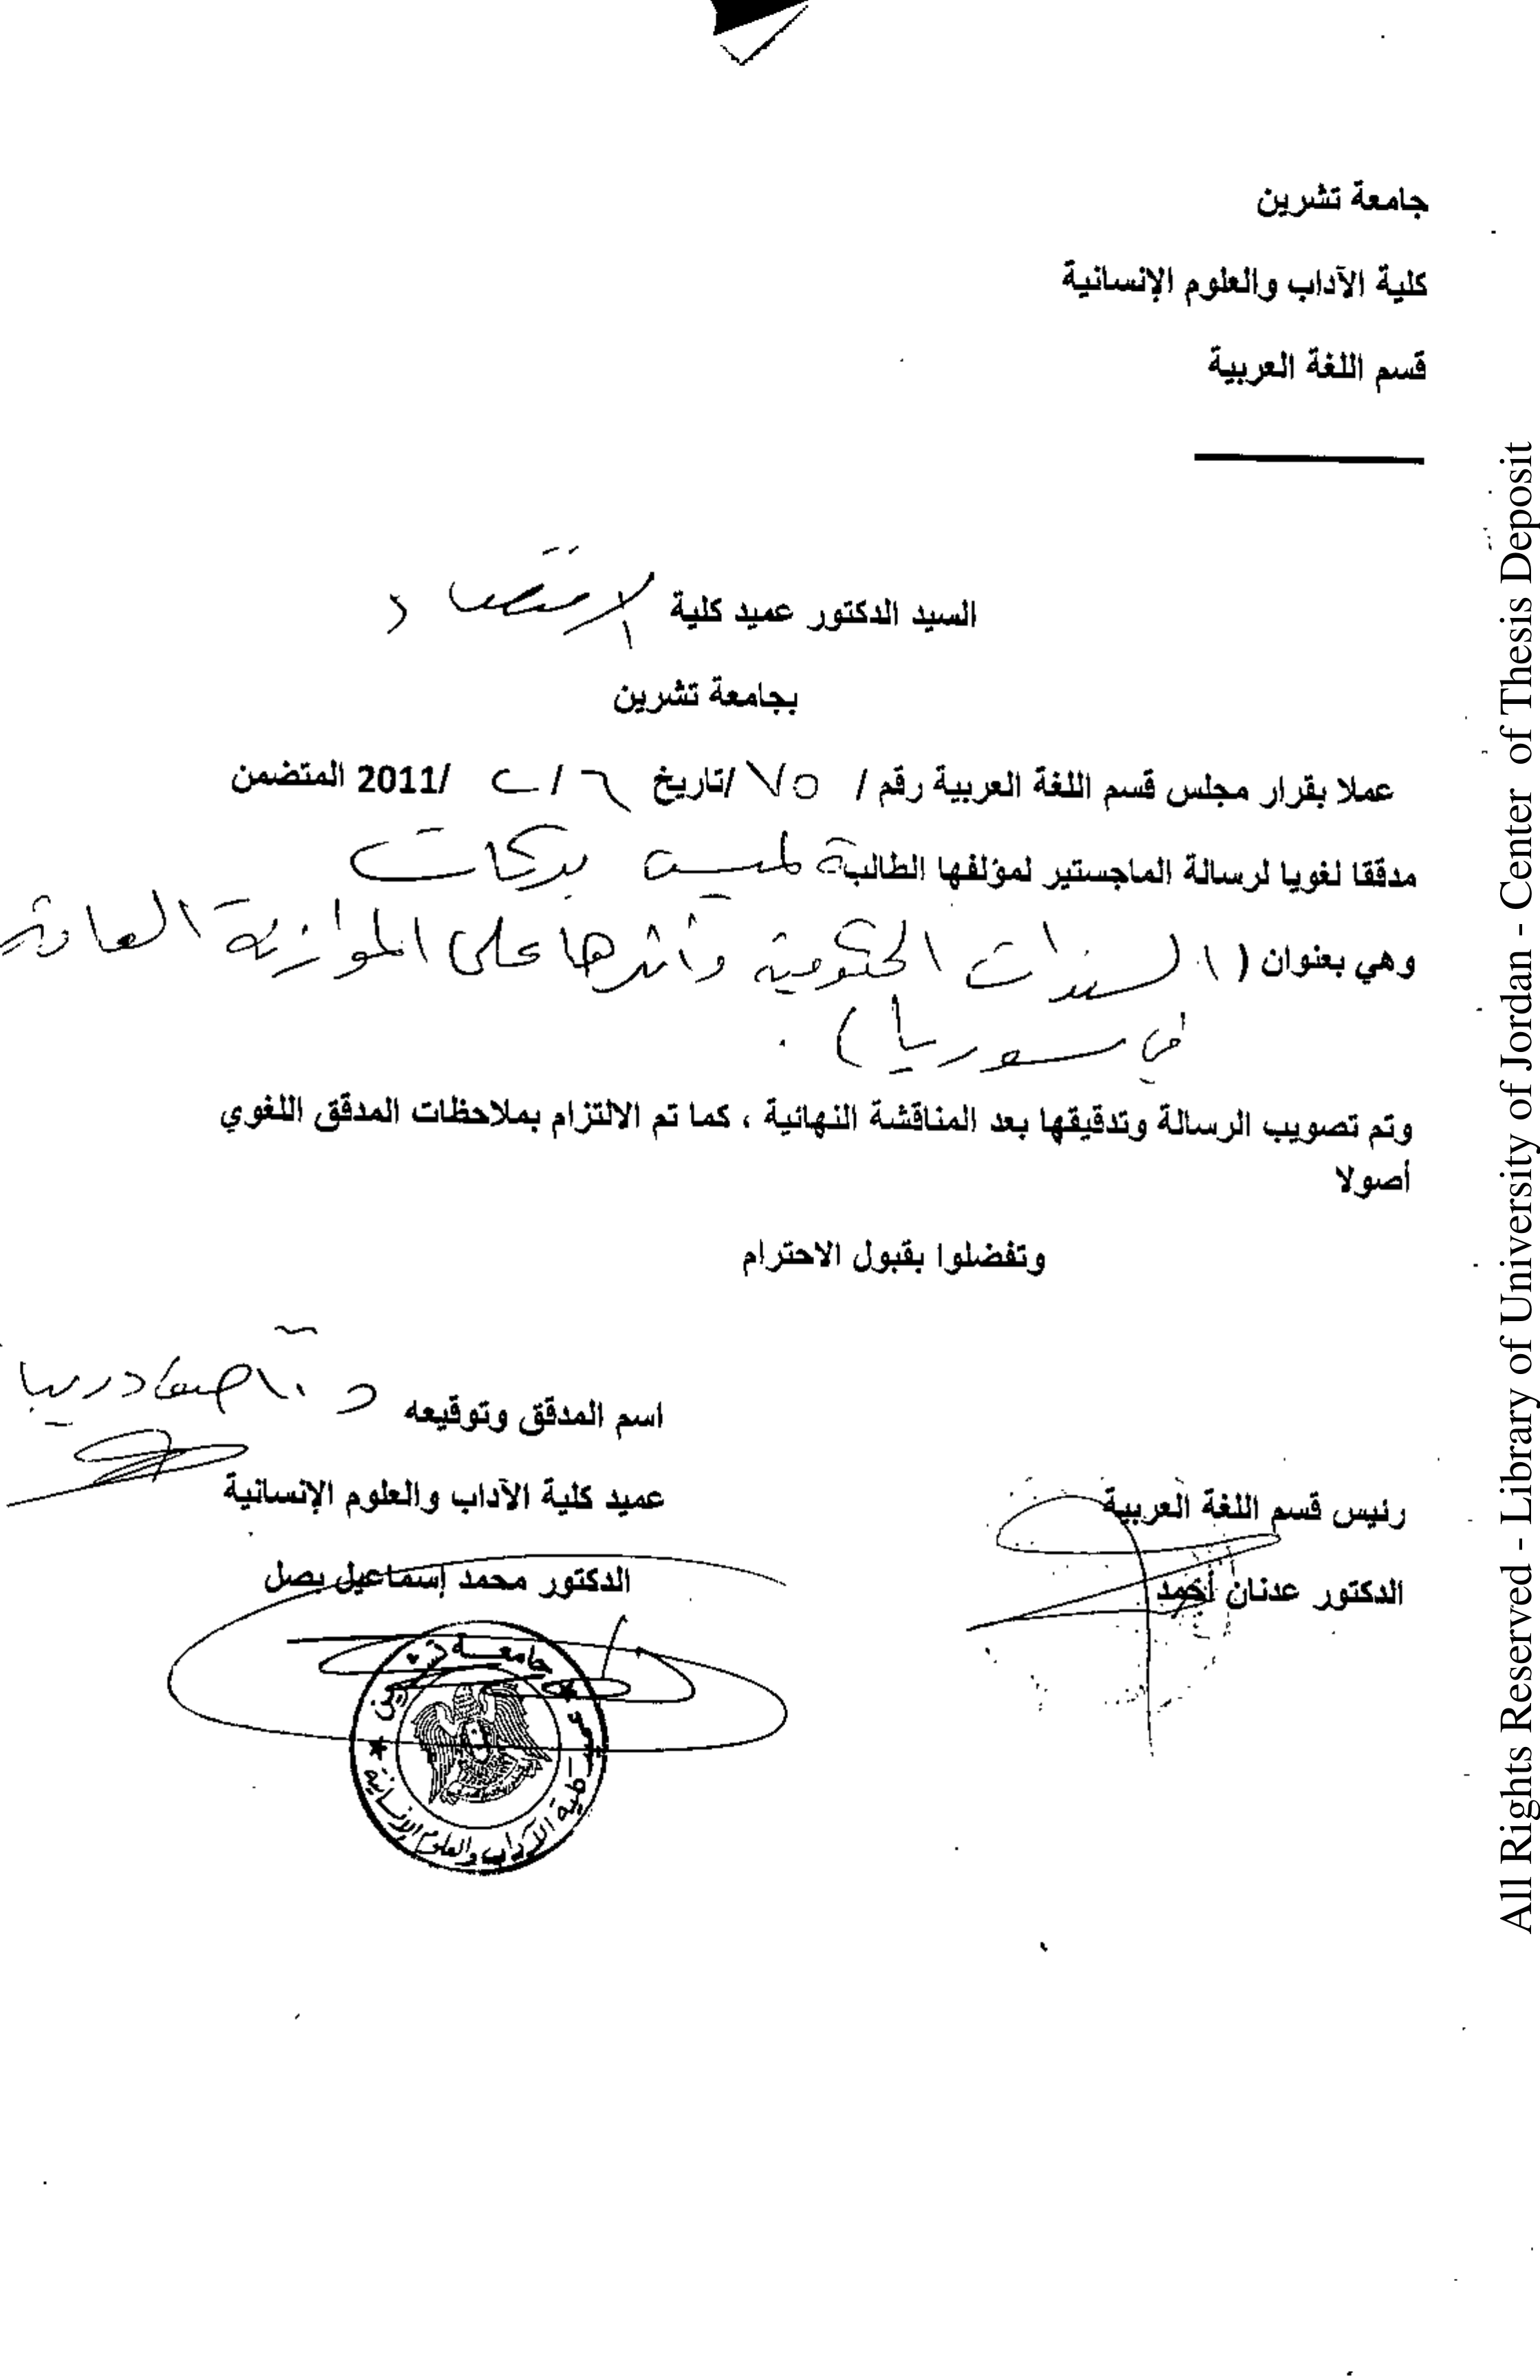 جامعة تشرين
كلية الآداب والعلوم الإنسانية
قسم اللغة العربية
السيد الدكتور عميد كلية الاقتصاد
بجامعة تشرين
عملا بقرار مجلس قسم اللغة العربية رقم / /تاريخ / /2011 المتضمن
مدققا لغويا لرسالة الماجستير لمؤلفها الطالبة لميس بركات
وهي بعنوان ( السندات الحكومية وأثرها على الموازنة العامة
في سوريا ) .
وتم تصويب الرسالة وتدقيقها بعد المناقشة النهائية ، كما تم الالتزام بملاحظات المدقق اللغوي
أصولا
وتفضلوا بقبول الاحترام
اسم المدقق وتوقيعه د.
رئيس قسم اللغة العربية
عميد كلية الآداب والعلوم الإنسانية
الدكتور عدنان أحمد
الدكتور محمد إسماعيل بصل
جامعة تشرين
كلية الآداب والعلوم الإنسانية
All Rights Reserved - Library of University of Jordan - Center of Thesis Deposit